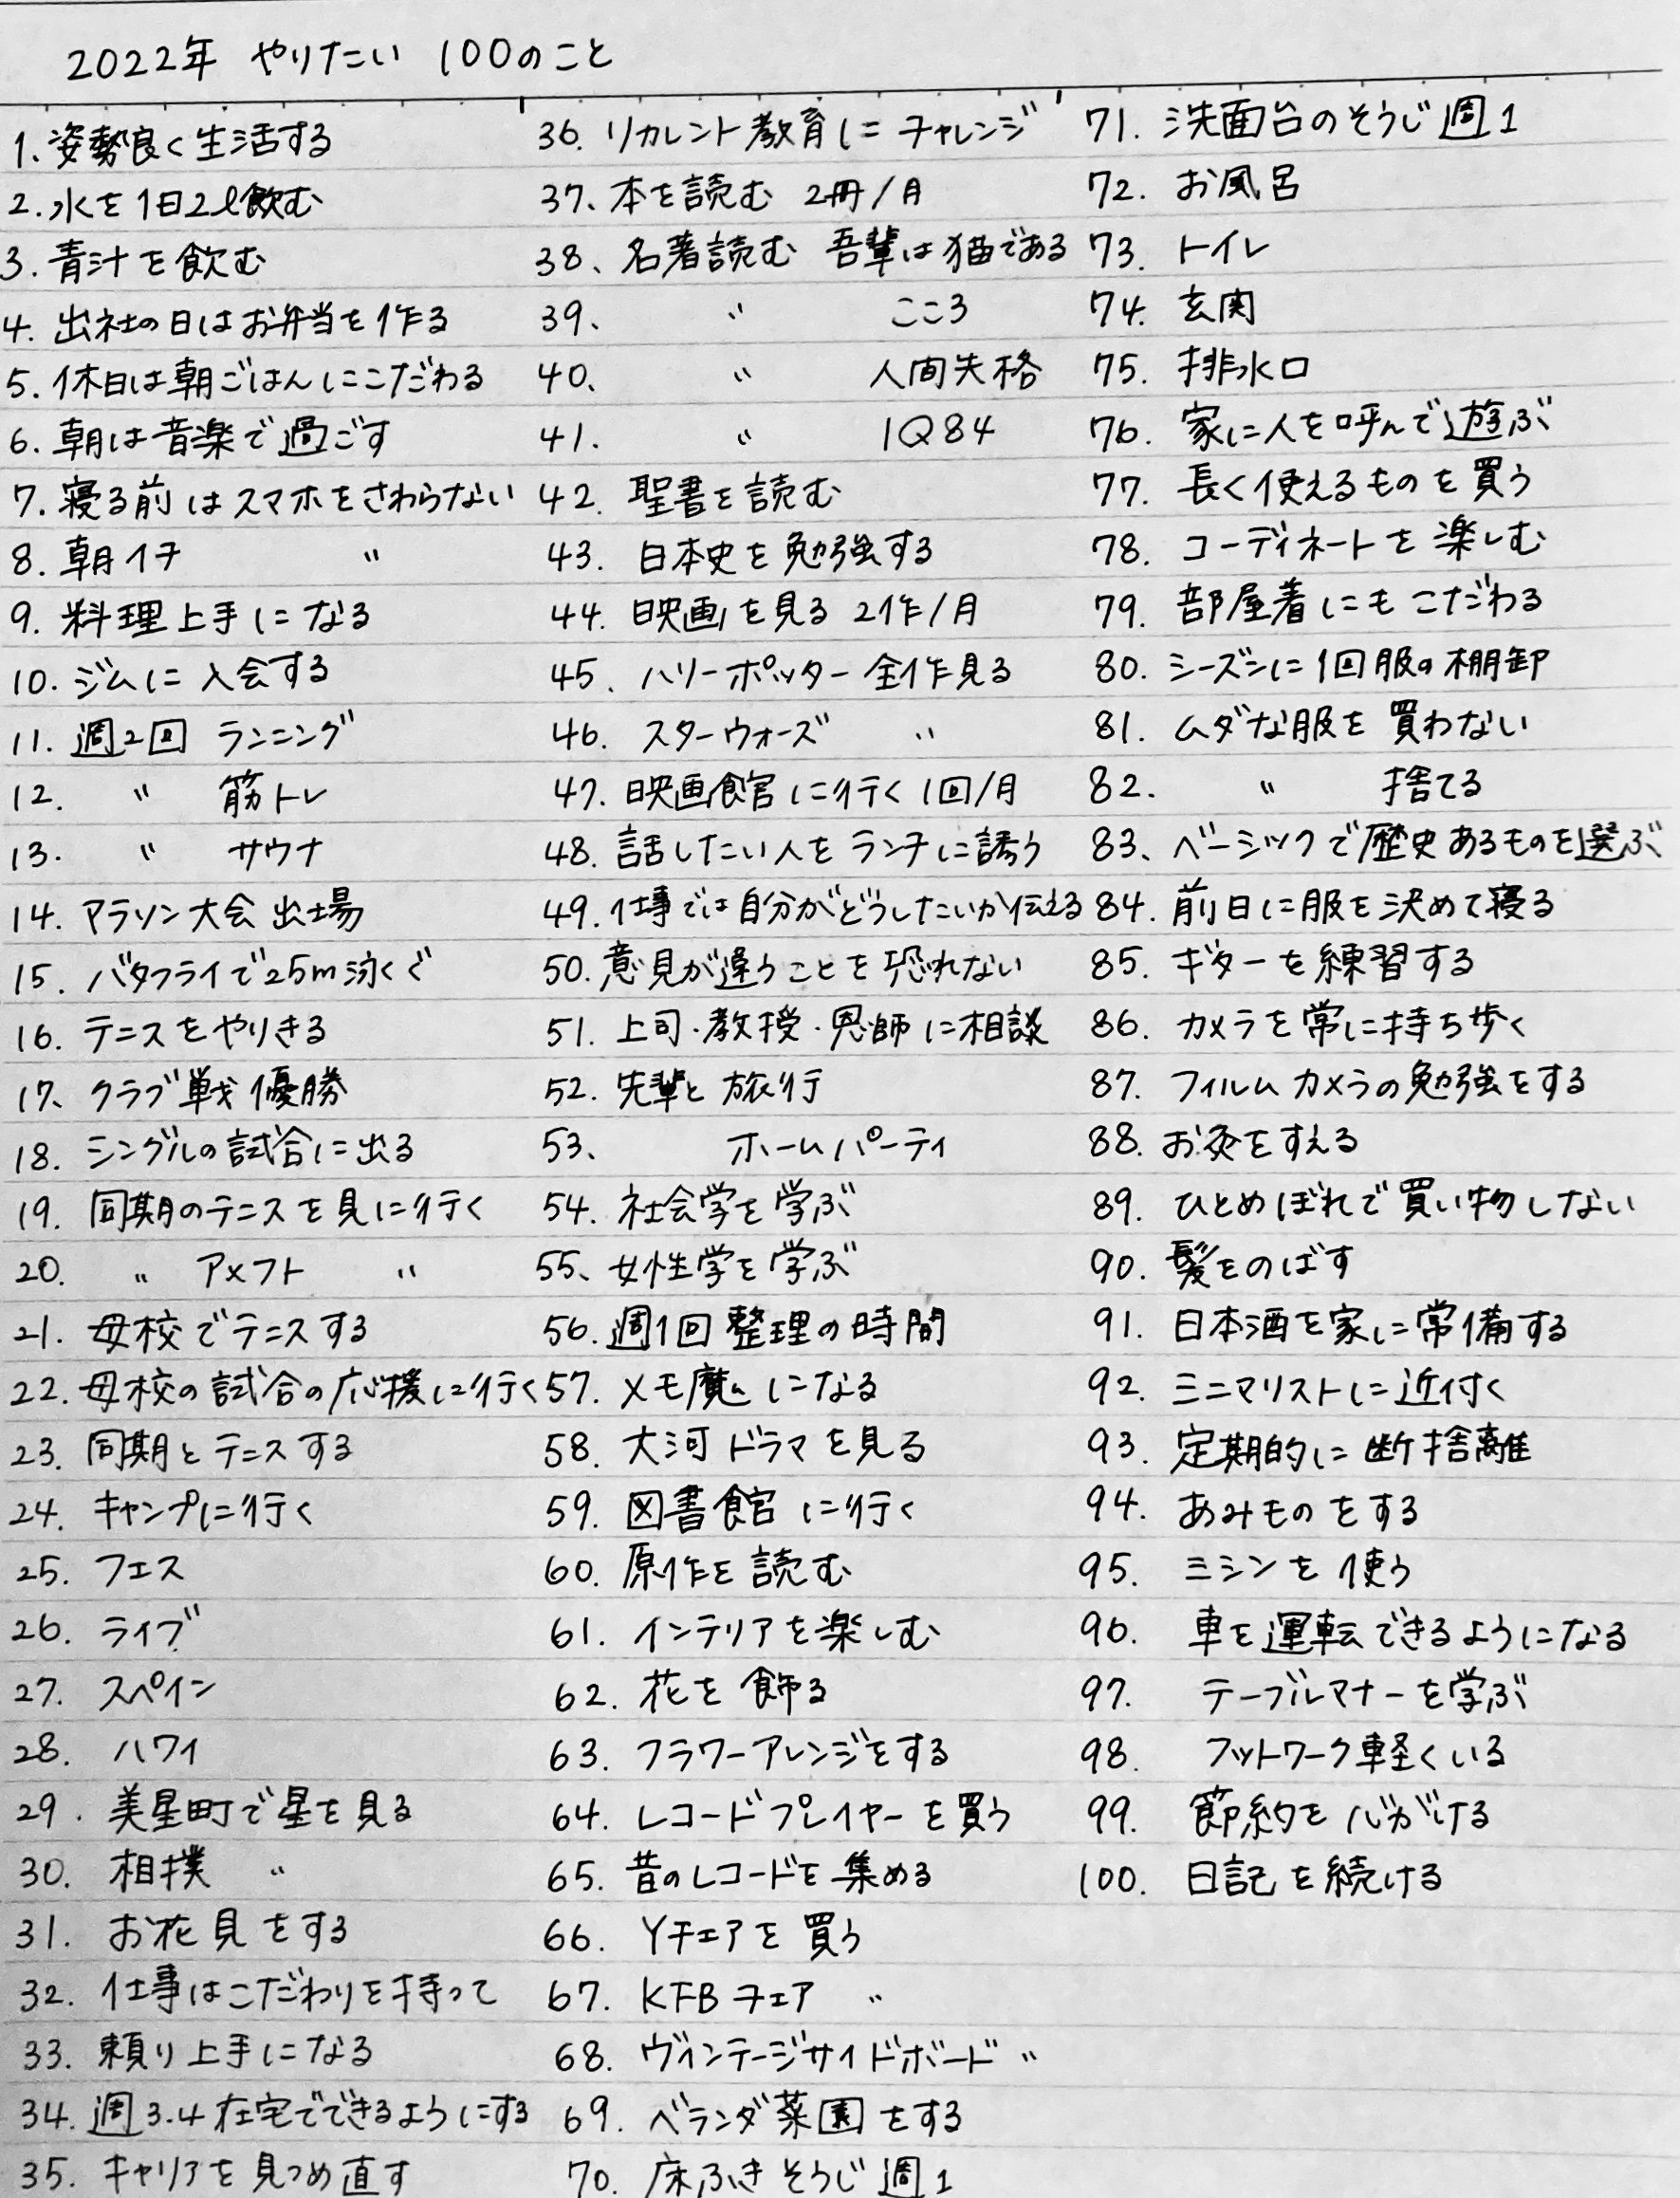 2022年 やりたい 100のこと
1. 姿勢良く生活する
2. 水を1日2ℓ飲む
3. 青汁を飲む
4. 出社の日はお弁当を作る
5. 休日は朝ごはんにこだわる
6. 朝は音楽で過ごす
7. 寝る前はスマホをさわらない
8. 朝イチ 〃
9. 料理上手になる
10. ジムに入会する
11. 週2回 ランニング
12. 〃 筋トレ
13. 〃 サウナ
14. マラソン大会出場
15. バタフライで25m泳ぐ
16. テニスをやりきる
17. クラブ戦優勝
18. シングルの試合に出る
19. 同期のテニスを見に行く
20. 〃 アメフト 〃
21. 母校でテニスする
22. 母校の試合の応援に行く
23. 同期とテニスする
24. キャンプに行く
25. フェス
26. ライブ
27. スペイン
28. ハワイ
29. 美星町で星を見る
30. 相撲 〃
31. お花見をする
32. 仕事はこだわりを持って
33. 頼り上手になる
34. 週3.4在宅でできるようにする
35. キャリアを見つめ直す
36. リカレント教育にチャレンジ
37. 本を読む 2冊/月
38. 名著読む 吾輩は猫である
39. 〃 こころ
40. 〃 人間失格
41. 〃 1Q84
42. 聖書を読む
43. 日本史を勉強する
44. 映画を見る 2作/月
45. ハリーポッター全作見る
46. スターウォーズ 〃
47. 映画館に行く 1回/月
48. 話したい人をランチに誘う
49. 仕事では自分がどうしたいか伝える
50. 意見が違うことを恐れない
51. 上司・教授・恩師に相談
52. 先輩と旅行
53. ホームパーティ
54. 社会学を学ぶ
55. 女性学を学ぶ
56. 週1回整理の時間
57. メモ魔になる
58. 大河ドラマを見る
59. 図書館に行く
60. 原作を読む
61. インテリアを楽しむ
62. 花を飾る
63. フラワーアレンジをする
64. レコードプレイヤーを買う
65. 昔のレコードを集める
66. Yチェアを買う
67. KFBチェア 〃
68. ヴィンテージサイドボード 〃
69. ベランダ菜園をする
70. 床ふきそうじ週1
71. 洗面台のそうじ週1
72. お風呂
73. トイレ
74. 玄関
75. 排水口
76. 家に人を呼んで遊ぶ
77. 長く使えるものを買う
78. コーディネートを楽しむ
79. 部屋着にもこだわる
80. シーズンに1回服の棚卸
81. ムダな服を買わない
82. 〃 捨てる
83. ベーシックで歴史あるものを選ぶ
84. 前日に服を決めて寝る
85. ギターを練習する
86. カメラを常に持ち歩く
87. フィルムカメラの勉強をする
88. お灸をすえる
89. ひとめぼれで買い物しない
90. 髪をのばす
91. 日本酒を家に常備する
92. ミニマリストに近付く
93. 定期的に断捨離
94. あみものをする
95. ミシンを使う
96. 車を運転できるようになる
97. テーブルマナーを学ぶ
98. フットワーク軽くいる
99. 節約を心がける
100. 日記を続ける